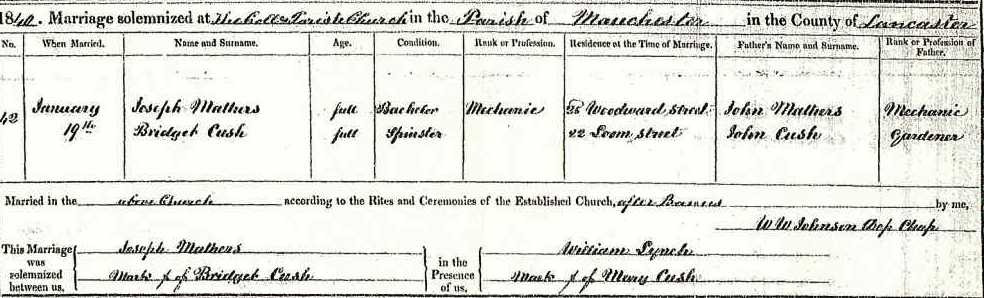 1840. Marriage solemnized at the Coll & Parish Church in the Parish of Manchester in the County of Lancaster
No. When Married. Name and Surname. Age. Condition. Rank or Profession. Residence at the Time of Marriage. Father's Name and Surname. Rank or Profession of Father.
42 January 19th Joseph Mathers full Bachelor Mechanic Woodward Street John Mathers Mechanic
Bridget Cush full Spinster 22 Loom Street John Cush Gardener
Married in the above Church according to the Rites and Ceremonies of the Established Church, after Banns by me,
W W Johnson Chap
This Marriage was solemnized between us, Joseph Mathers in the Presence of us, William Lynch
Mark x of Bridget Cush Mark x of Mary Cush